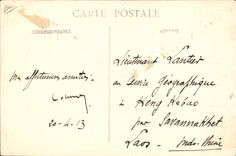 CARTE POSTALE
CORRESPONDANCE
ADRESSE
Lieutenant Lautier
au Service Géographique
à Keng Kabao
par Savannakhet
Laos - Indo-Chine
amitiés.
20-4-13